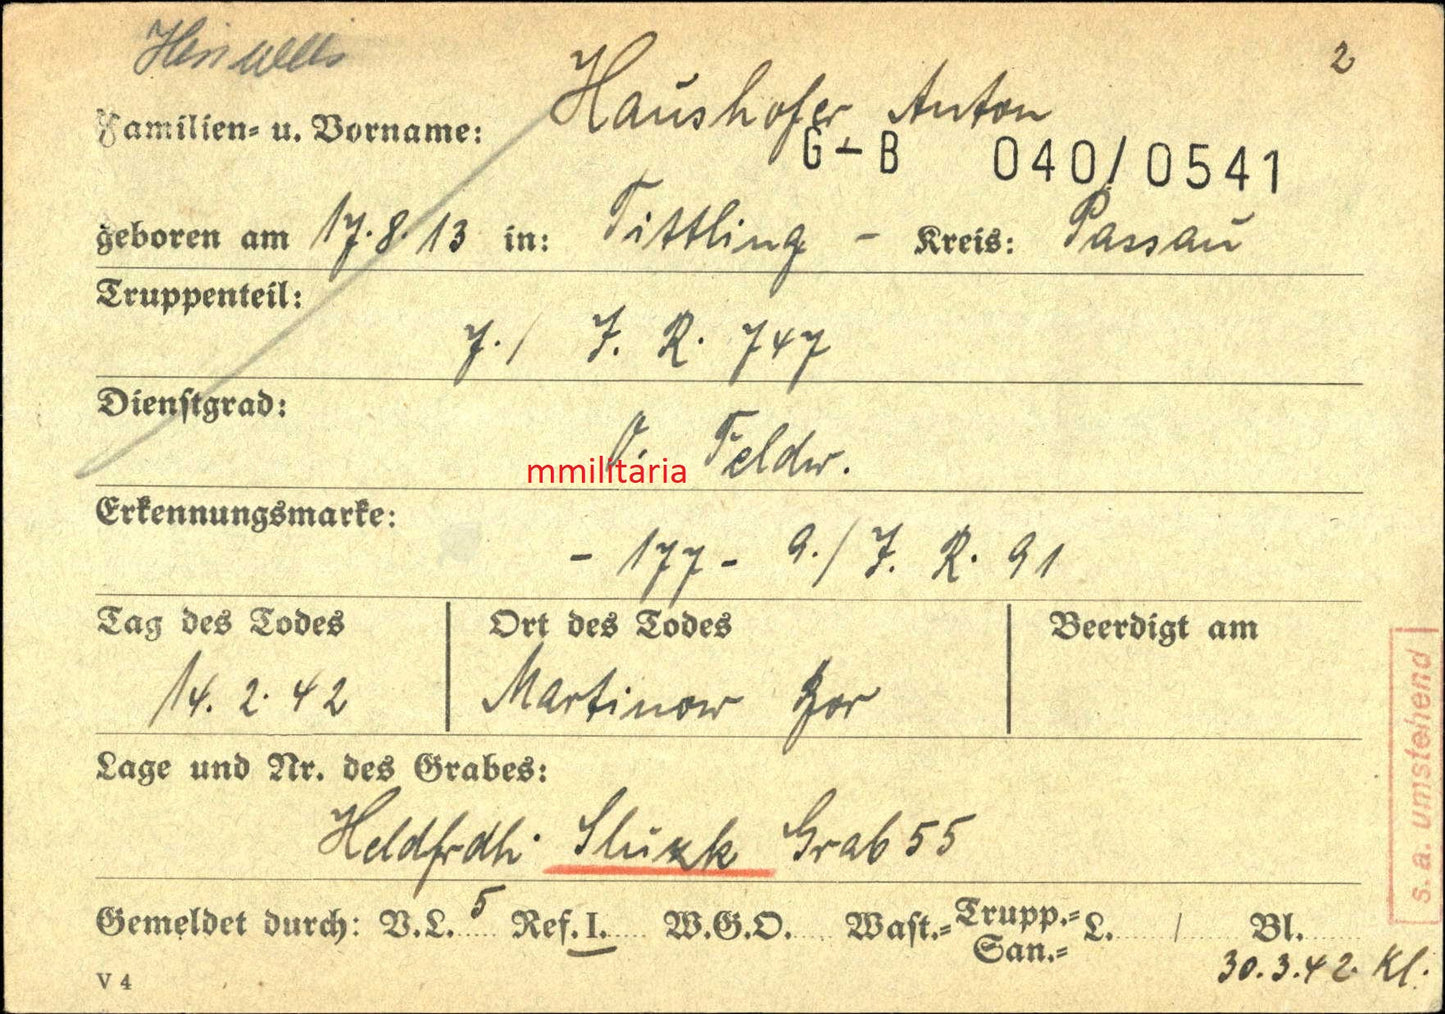 2
Haushofer Anton
Familien- u. Vorname:
G-B 040/0541
geboren am 17.8.13 in: Tittling - Kreis: Passau
Truppenteil:
7./ J. R. 747
Dienstgrad:
O. Feldw.
mmilitaria
Erkennungsmarke:
- 177 - 9./J. R. 91
Tag des Todes Ort des Todes Beerdigt am
14. 2. 42 Martinow
Lage und Nr. des Grabes:
Heldfrdh. Sluzk Grab 55
Gemeldet durch: V.L. 5 Ref. I. W.G.O. Wast.= Trupp.= San.= L. / Bl.
30.3.42 Kl.
V 4
s. a. umstehend